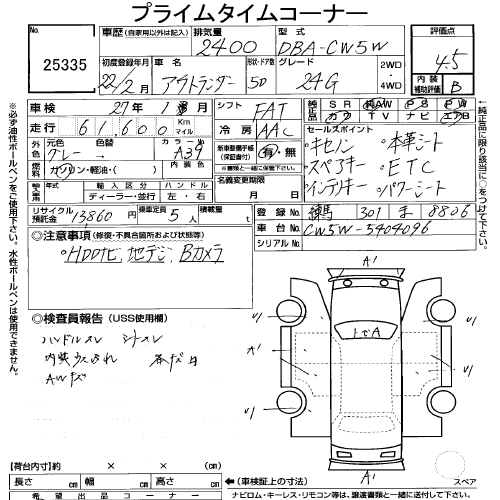 プライムタイムコーナー
No. 25335
車歴 (自家用以外は記入)
排気量 2400
型式 DBA-CW5W
評価点 4.5
初度登録年月 22/2月
車名 アウトランダー
形状・ドア数 5D
グレード 24G
2WD
4WD
内装補助評価 B
車検 27年 1月
シフト FAT
純正品 SR AW PS PW
カワ TV ナビ エアB
走行 61,600 Km マイル
冷房 AAC
セールスポイント
外色 元色 グレー 色替 カラーNo. A39
新車整備手帳(保証書付) 有・無
※書類と一緒に保管下さい。
キセノン 本革シート
燃料 ガソリン・軽油・( ) 内装色
スペアキー ETC
輸入車 年式 輸入区分 ハンドル
ディーラー・並行 左・右
名義変更期限 月 日
インテリキー パワーシート
リサイクル預託金 13860円
乗車定員 5人
積載量 t
登録No. 練馬 301 ま 8806
車台No. CW5W-5404096
シリアルNo.
◎注意事項 (修復・不具合箇所および状態等)
HDDナビ 地デジ Bカメラ
◎検査員報告 (USS使用欄)
ハンドルスレ シートスレ
AWキズ
A1
U1
U1
A1
トビA
U1
U1
A1
スペア
【荷台内寸】 × × (cm)
長さ cm 幅 cm 高さ cm
(車検証上の寸法)
希望出品コーナー
ナビロム・キーレス・リモコン等は、譲渡書類と一緒に送付して下さい。
※必ず油性ボールペンをご使用下さい。水性ボールペンは使用できません。
純正品に限り該当に○をつけて下さい